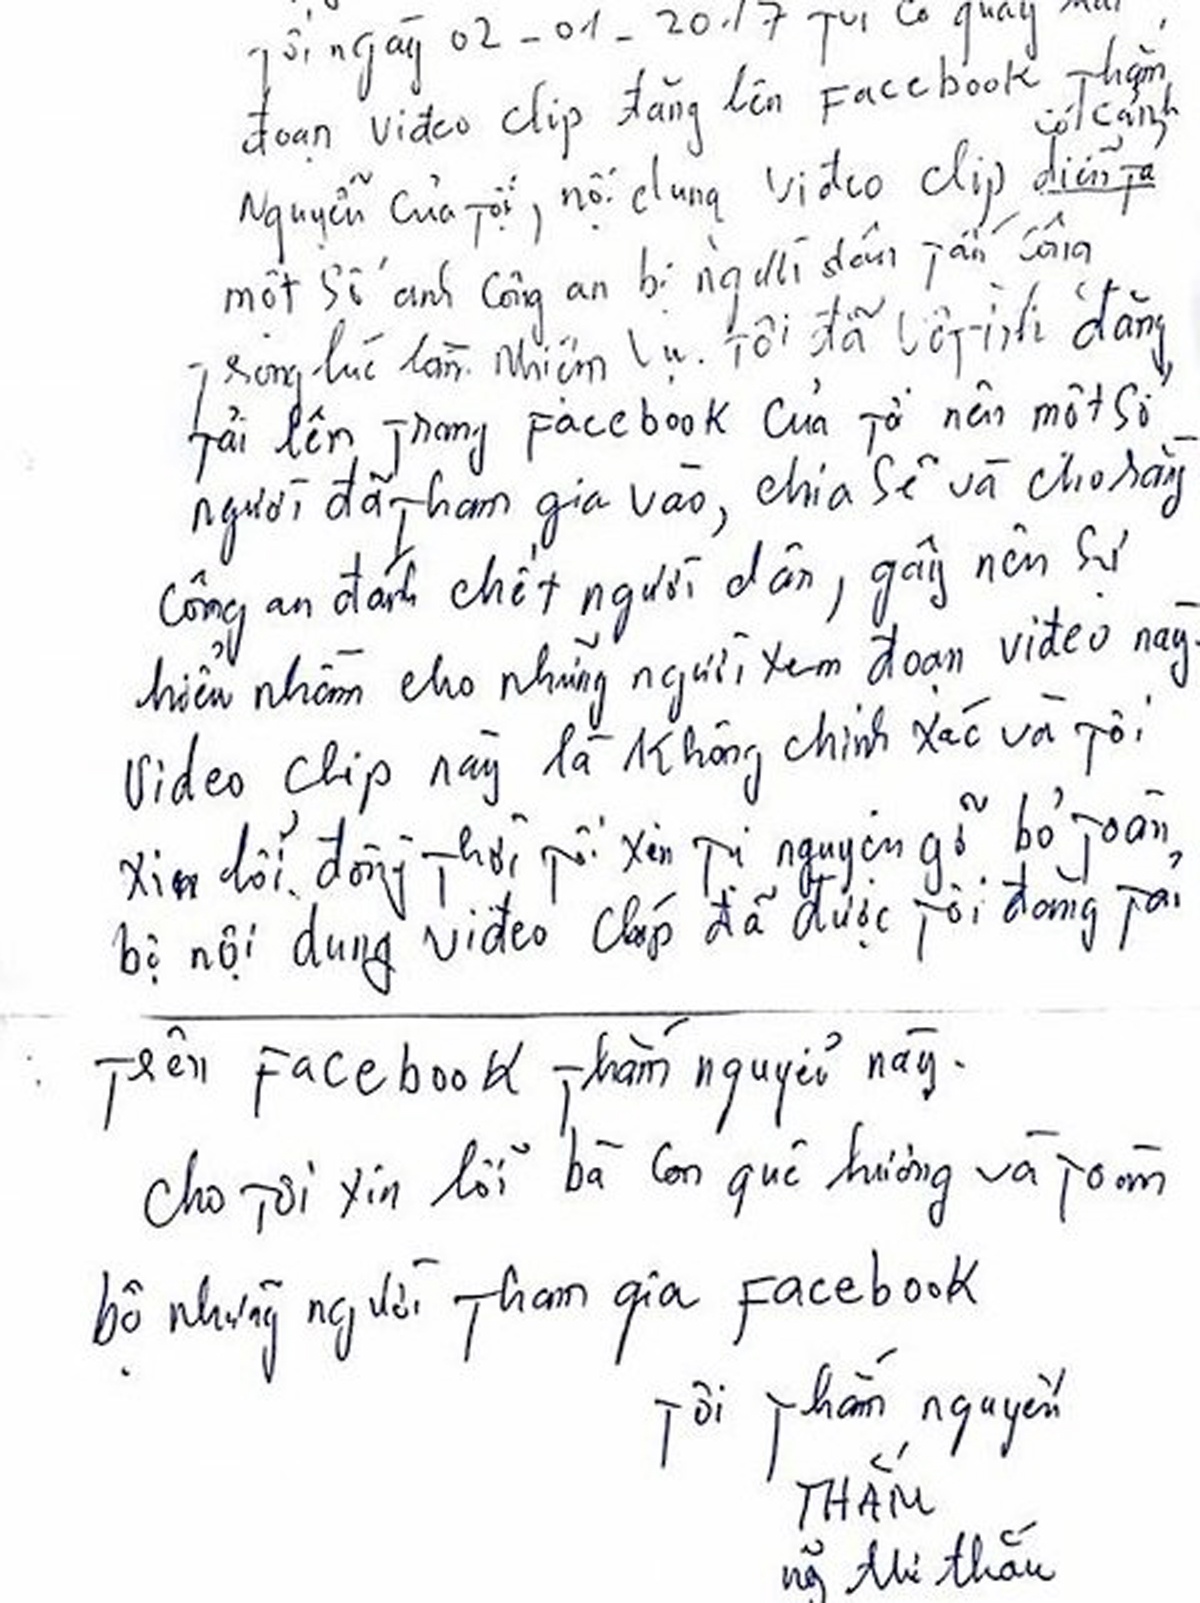 Tối ngày 02-01-2017 Tui có quay một
đoạn video clip đăng lên Facebook Thắm
có cảnh
Nguyễn của tôi, nội dung video clip diễn tả
một số anh công an bị người dân tấn công
trong lúc làm nhiệm vụ. Tôi đã vô tình đăng
tải lên trang Facebook của tô nên một số
người đã tham gia vào, chia sẽ và cho rằng
công an đánh chết người dân, gây nên sự
hiểu nhầm cho những người xem đoạn video này.
Video clip này là không chính xác và tôi
xin lỗi. đồng thời tôi xin tự nguyện gỡ bỏ toàn
bộ nội dung video clip đã được tôi đăng tải
trên Facebook thắm nguyễn này.
cho tôi xin lỗi bà con quê hương và toàn
bộ những người tham gia Facebook
Tôi thắm nguyễn
THẮM
ng thi thắm